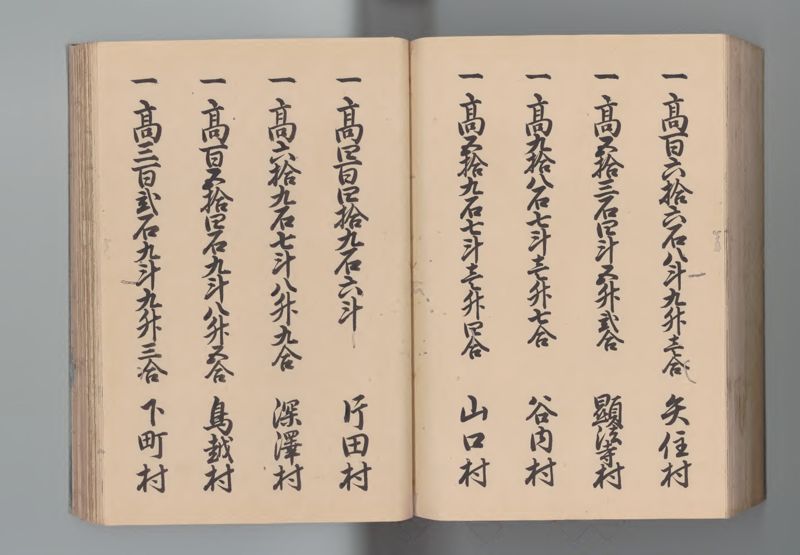 一 高百六拾六石八斗九升壱合 矢住村
一 高五拾三石四斗五升弐合 顕法寺村
一 高九拾八石七斗壱升七合 谷内村
一 高五拾九石七斗壱升四合 山口村
一 高四百四拾九石六斗 片田村
一 高六拾九石七斗八升九合 深澤村
一 高百五拾四石九斗八升五合 鳥越村
一 高三百弐石九斗九升三合 下町村